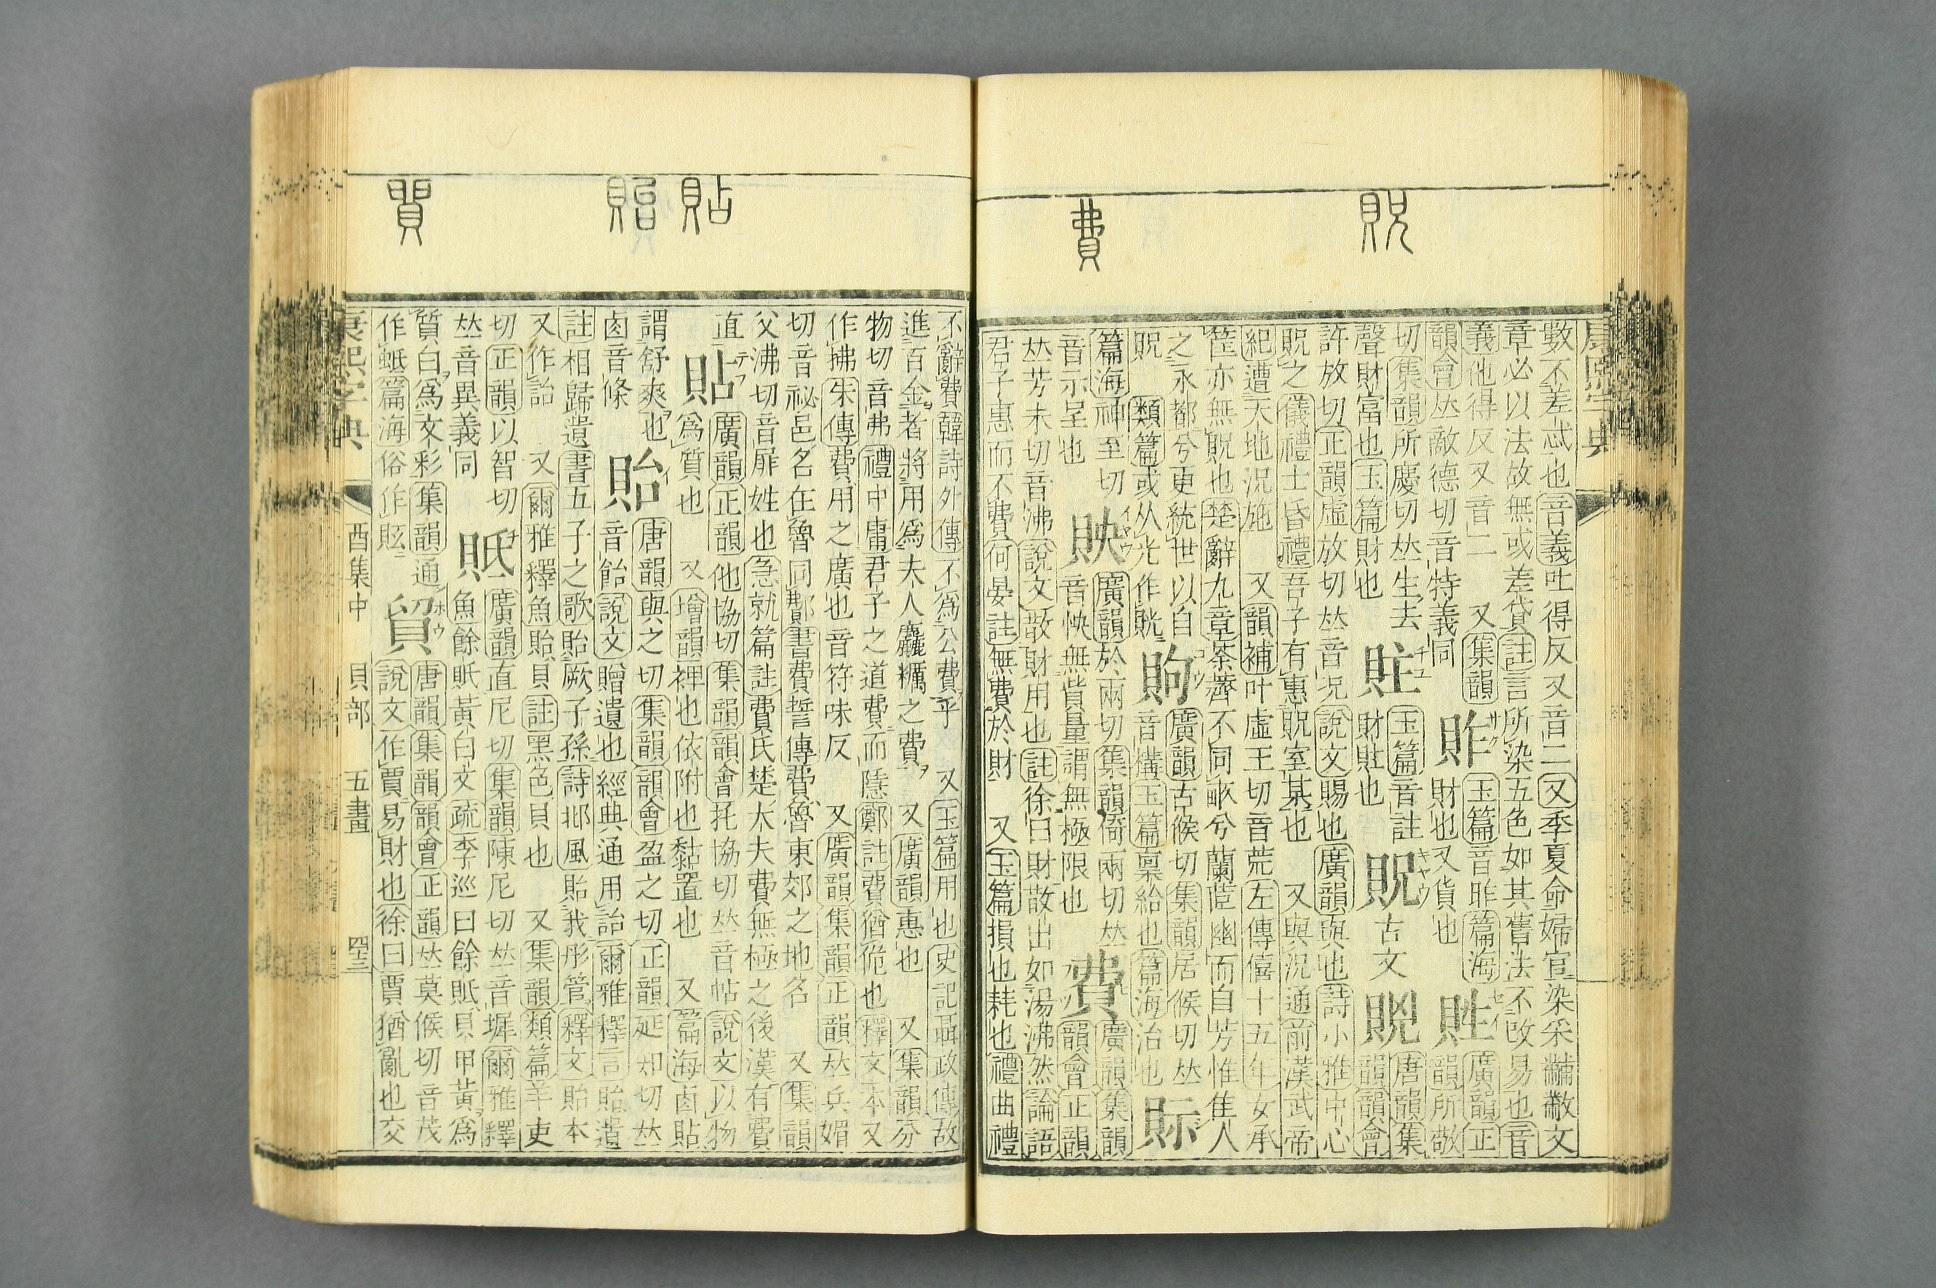 貺
費
數不差忒也音義吐得反又音二又季夏命婦官染采黼黻文
章必以法故無或差貸註言所染五色如其舊法不改易也音
義他得反又音二　又集韻
韻會𠀤敵德切音特義同
貯
玉篇音昨篇海
財也又貨也
貹
廣韻正
韻所敬
切集韻所慶切𠀤生去
聲財富也玉篇財也
㒒
玉篇音註
財貯也
貺
古文
䝷
唐韻集
韻韻會
許放切正韻虛放切𠀤音況說文賜也廣韻與也詩小雅中心
貺之儀禮士昏禮吾子有惠貺室某也　又與況通前漢武帝
紀遭天地況施　又韻補叶虛王切音荒左傳僖十五年女承
筐亦無貺也楚辭九章荼薺不同畝兮蘭茝幽而自芳惟佳人
之永都兮更統世以自
貺　類篇或从光作䝷
㕭
廣韻古候切集韻居候切𠀤
音構玉篇稟給也篇海治也
𧵋
篇海神至切
音示呈也
䝹
廣韻於兩切集韻倚兩切𠀤
音怏無貲量謂無極限也
費
廣韻集韻
韻會正韻
𠀤芳未切音沸說文散財用也註徐曰財散出如湯沸然論語
君子惠而不費何晏註無費於財　又玉篇損也耗也禮曲禮
貼
貽
貿
不辭費韓詩外傳不爲公費乎　又玉篇用也史記聶政傳故
進百金者將用爲夫人麤糲之費　又廣韻惠也　又集韻芬
物切音弗禮中庸君子之道費而隱鄭註費猶佹也釋文本又
作拂朱傳費用之廣也音符味反　又廣韻集韻正韻𠀤兵媚
切音祕邑名在魯同鄪書費誓傳費魯東郊之地名　又集韻
父沸切音屝姓也急就篇註費氏楚大夫費無極之後漢有費
直
貼
廣韻正韻他協切集韻韻會托協切𠀤音帖說文以物
爲質也　又增韻裨也依附也黏置也　又篇海卣貼
謂舒爽也
卣音條
貽
唐韻與之切集韻韻會盈之切正韻延知切𠀤
音飴說文贈遺也經典通用詒爾雅釋言貽遺
註相歸遺書五子之歌貽厥子孫詩邶風貽我彤管釋文貽本
又作詒　又爾雅釋魚貽貝註黑色貝也　又集韻類篇羊吏
切正韻以智切
𠀤音異義同
貾
廣韻直尼切集韻陳尼切𠀤音墀爾雅釋
魚餘貾黃白文疏李巡曰餘貾貝甲黃爲
質白爲文彩集韻通
作蚳篇海俗作䝬
貿
唐韻集韻韻會正韻𠀤莫候切音茂
說文作賈易財也徐曰賈猶亂也交
康熙字典
酉集中　貝部　五畫
四三